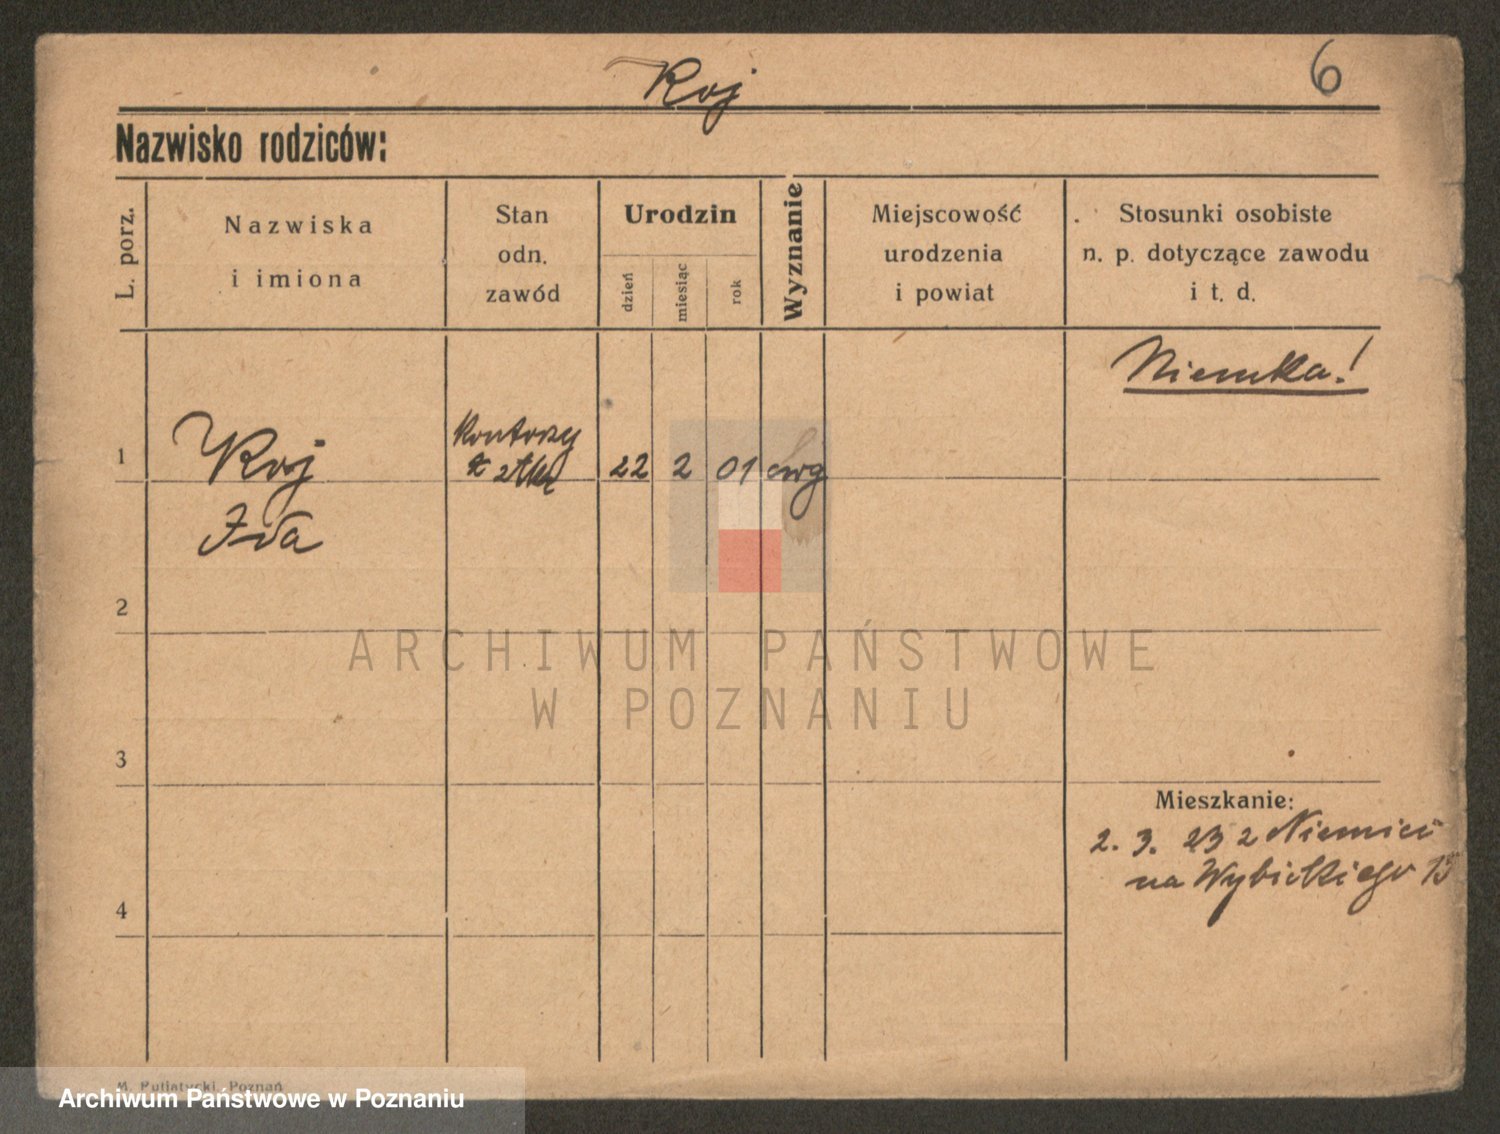 Koj
6
Nazwisko rodziców:
L. porz.
Nazwiska
i imiona
Stan
odn.
zawód
Urodzin
dzień
miesiąc
rok
Wyznanie
Miejscowość
urodzenia
i powiat
Stosunki osobiste
n. p. dotyczące zawodu
i t. d.
Niemka!
1
Koj
Ida
22 2 01 ewg
2
3
4
Mieszkanie:
2. 3. 23 z Niemiec
na Wybickiego 15
ARCHIWUM PAŃSTWOWE
W POZNANIU
M. Putiatycki, Poznań
Archiwum Państwowe w Poznaniu